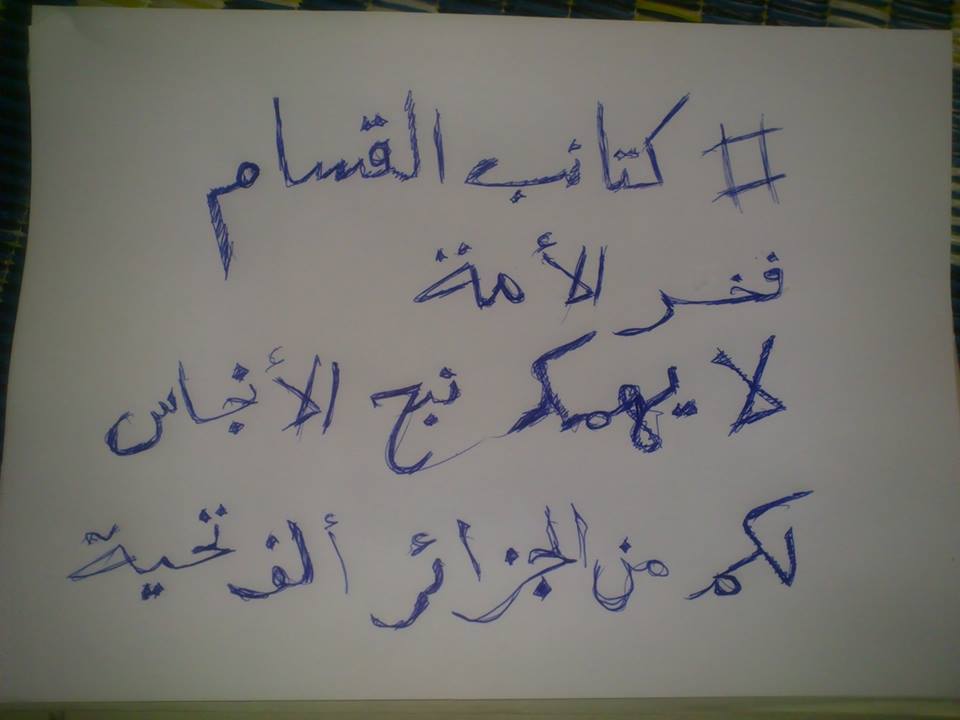 # كتائب القسام
فخر الأمة
لا يهمكم نبح الأنجاس
لكم من الجزائر ألف تحية